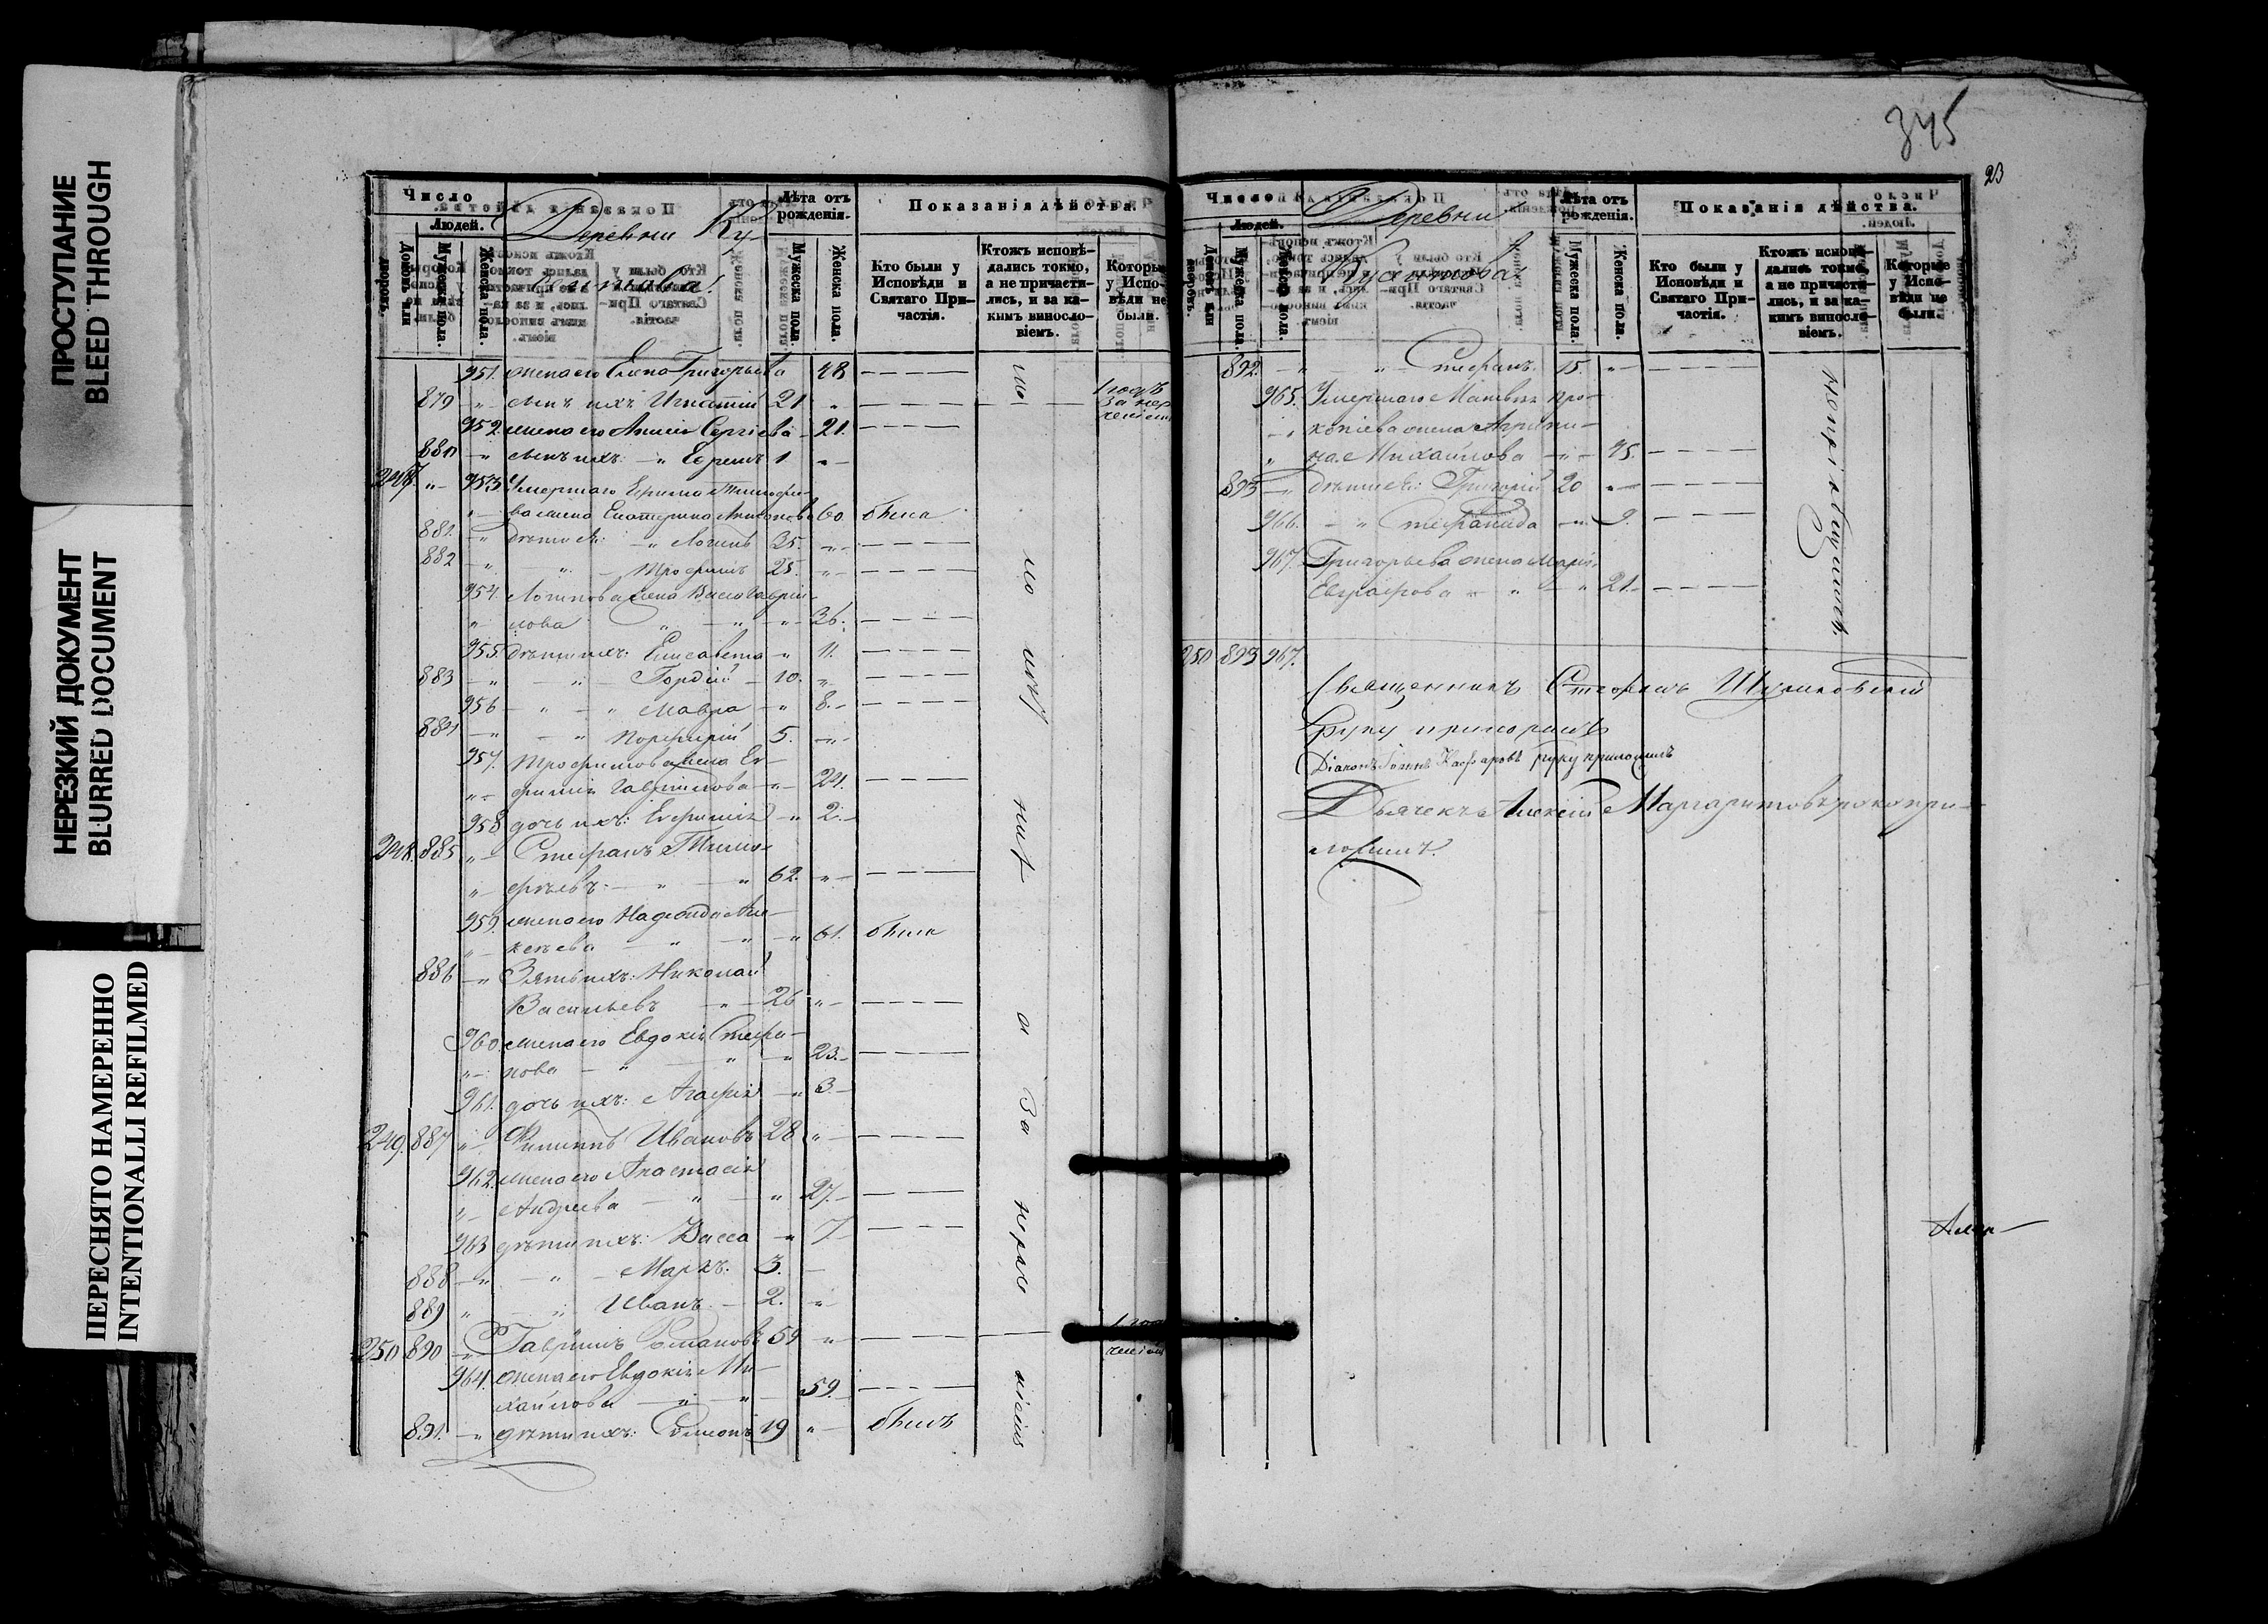 ПРОСТУПАНИЕ
BLEED THROUGH
НЕРЕЗКИЙ ДОКУМЕНТ
BLURRED DOCUMENT
ПЕРЕСНЯТО НАМЕРЕННО
INTENTIONALLI REFILMED
Число
Людей.
Домовъ или дворовъ.
Мужеска пола.
Женска пола.
Деревни Ку-
Лѣта отъ рожденія.
Мужеска пола.
Женска пола.
Показанія дѣйства.
Кто были у Исповѣди и Святаго При-частія.
Ктожъ исповѣ-дались токмо, а не причасти-лись, и за ка-кимъ винословіемъ.
Которые у Испо-вѣди не были.
951. жена его Елена Григорьева 48
879 -"- сынъ ихъ Игнатій 21 "
952. жена его Анисія Сергіева - 21.
880 -"- сынъ ихъ: -"- Ефремъ 1 "-
247. "- 953. Умершаго Ефима Тимофе-
"- ва жена Екатерина Антонова 60. была
881. -"- дѣти ея: -"- Логинъ 35. "-
882 -"- " - Трофимъ 25. "-
954. Логинова жена Васса Гаврі-
"- лова " - " - "- 36.
955. дѣти ихъ: Елисавета - " 11.
883 -"- -"- Гордій - 10. "-
956 - " - " Мавра - " 8.-
884 -"- -" Порфирій 5. -"-
957. Трофимова жена Ев-
"- фимія Гаврилова -"- 24.
958 дочь ихъ: Евфимія - " 2.-
248. 885 "- Стефанъ Тимо-
"- феевъ. - " - " 62. "-
959. жена его Надежда Але-
"- ксѣева - " - " - " 61. была
886 -" Зять ихъ: Николай
Васильевъ -"- 26 "-
960. жена его Евдокія Стефа-
"- нова - " - " - " 23.-
961. дочь ихъ: Агафія - " 3-
249. 887 "- Филиппъ Ивановъ 28 "-
962. жена его Анастасія
"- Андреева - " - " 27.-
963 дѣти ихъ: Васса - " 7-
888 -" - " - Маркъ. 3. -
889 " - " Иванъ. - 2. "-
250 890 -" Гаврiилъ Романовъ 59 "-
964. жена его Евдокія Ми-
хайлова - " - " 59.-
891. -" дѣти ихъ: Симеонъ 19 "- былъ
1 годъ
за нера
по
нит
а
за
нера
345
23
Число
Людей.
Домовъ или дворовъ.
Мужеска пола.
Женска пола.
Деревни
Лѣта отъ рожденія.
Мужеска пола.
Женска пола.
Показанія дѣйства.
Кто были у Исповѣди и Святаго При-частія.
Ктожъ исповѣ-дались токмо, а не причасти-лись, и за ка-кимъ винословіемъ.
Которые у Испо-вѣди не были.
892. -" - " Стефанъ. 15. "-
965. Умершаго Матвѣя Про-
-" копіева жена Агрипи-
" на Михайлова -"- 45.
893 -" дѣти ея: Григорій 20 "-
966. - " Стефанида -"- 9.
967. Григорьева жена Марія
Евграфова - " - " 21.-
250 893 967.
Священникъ Стефанъ
руку приложилъ
Діаконъ Іоаннъ руку приложилъ
Дьячекъ Алексій Маргаритовъ руку при-
ложилъ.